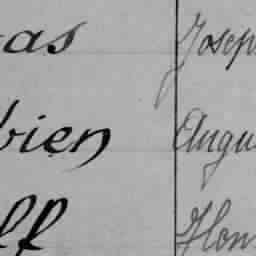 as Josep
bien Augu
ff Hon